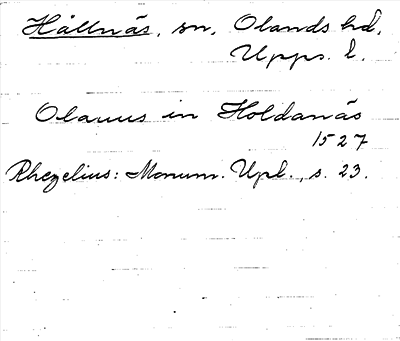 Hållnäs, sn, Olands hd,
Upps. l.
Olauus in Holdanäs
1527
Rhezelius: Monum. Upl., s. 23.